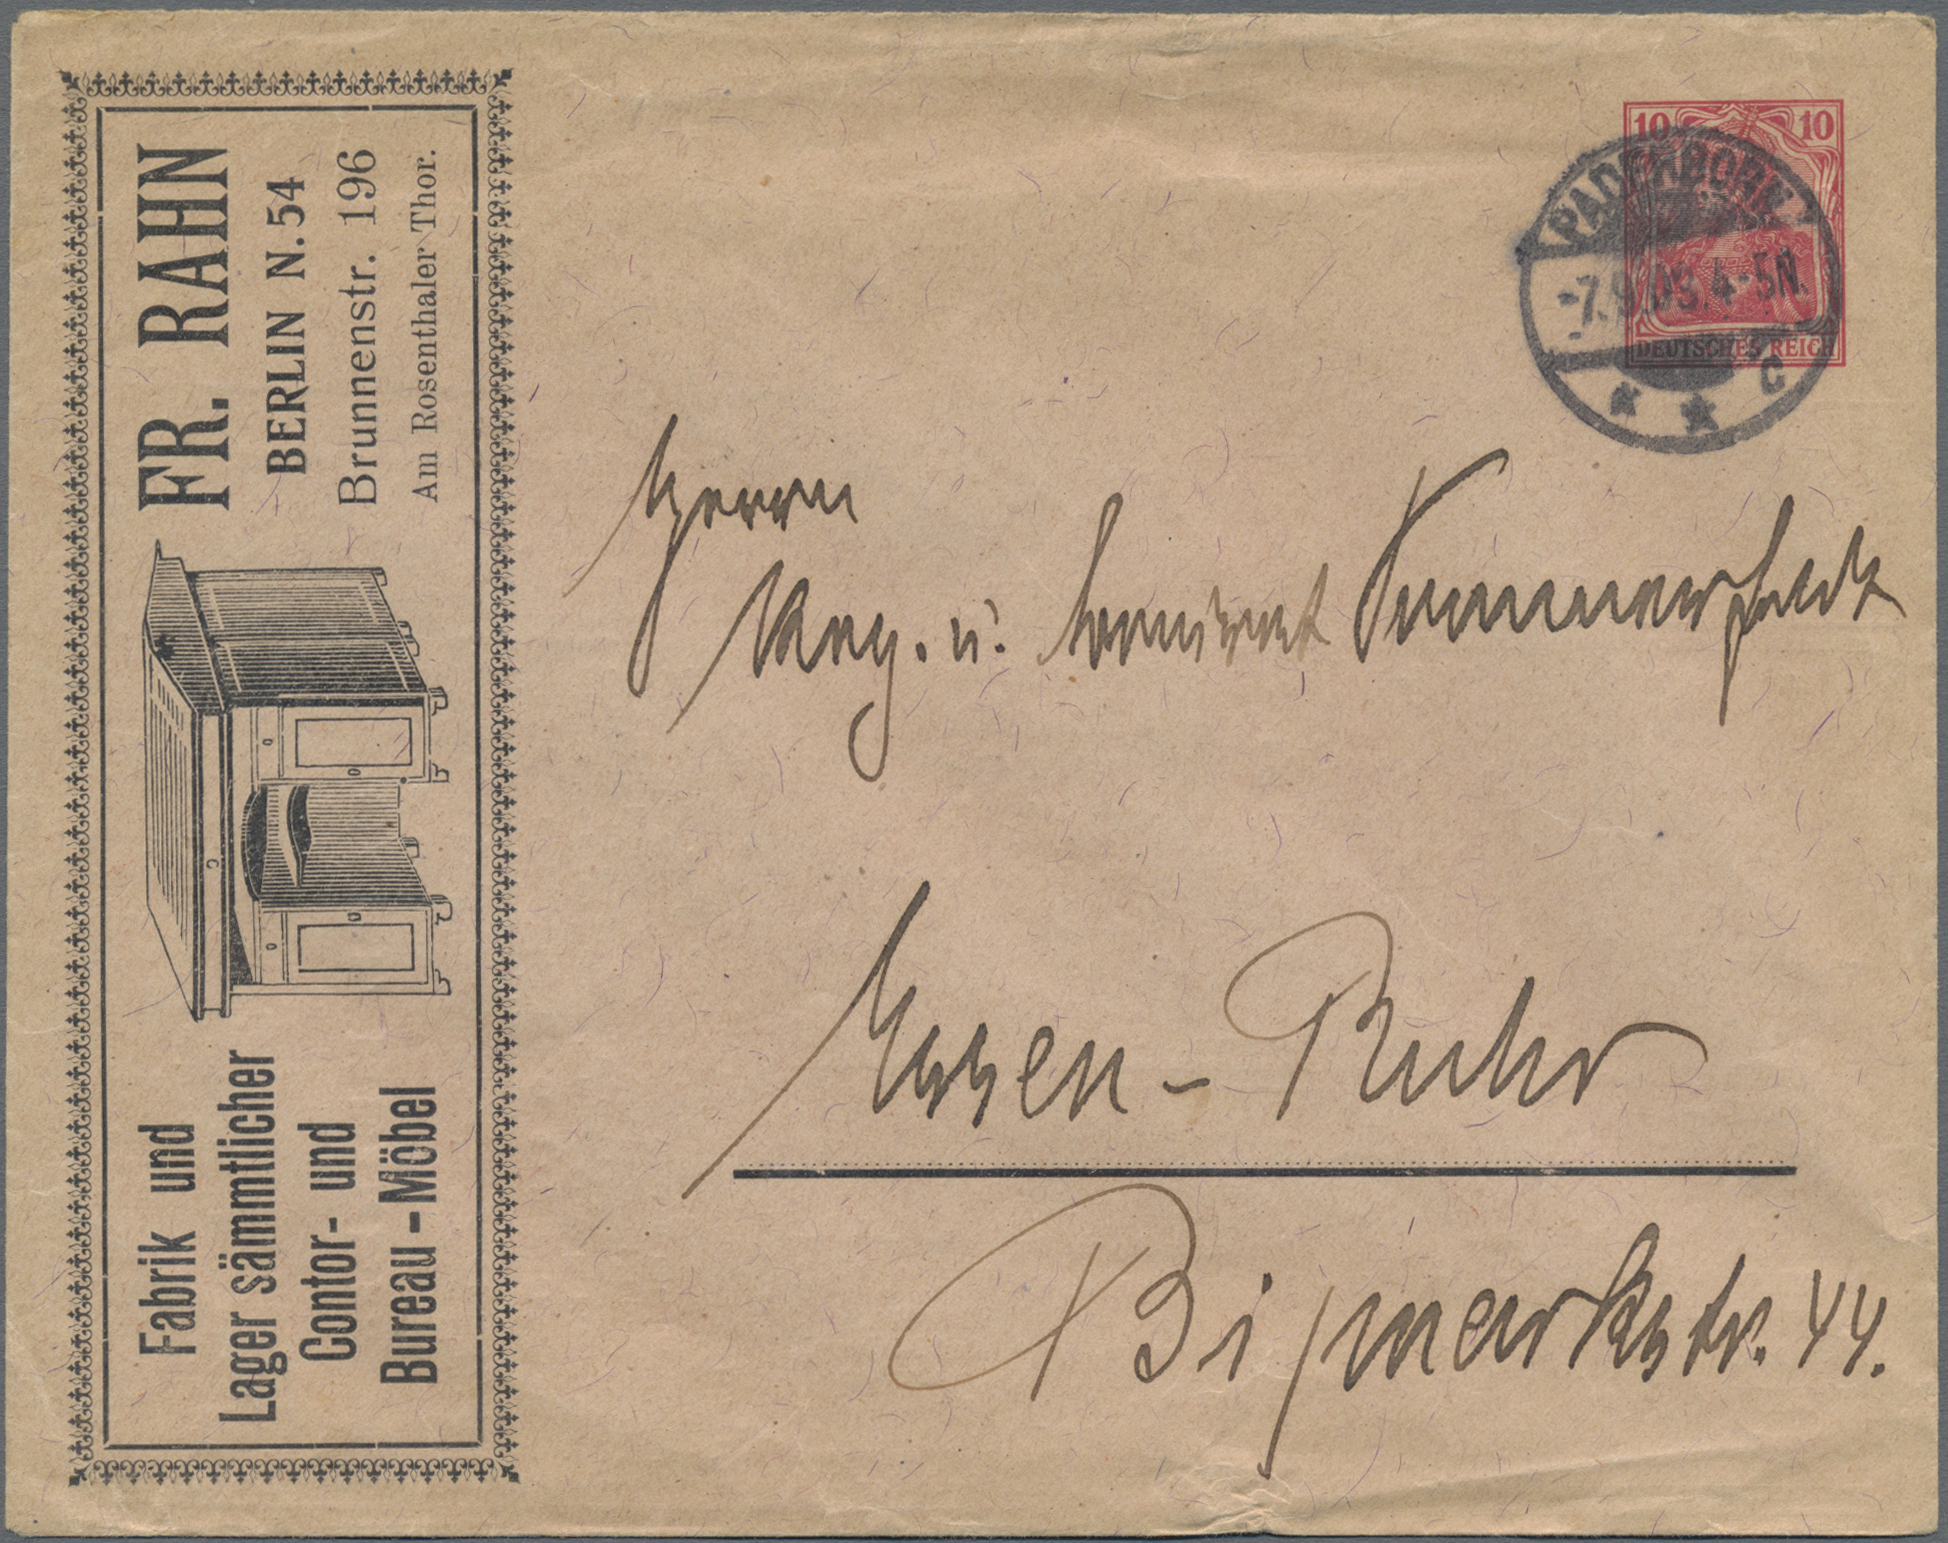 FR. RAHN
BERLIN N. 54
Brunnenstr. 196
Am Rosenthaler Thor.
Fabrik und
Lager sämmtlicher
Contor- und
Bureau-Möbel
10 10
DEUTSCHES REICH
PADERBORN
-7.9.03.4-5N.
* * c
Herrn
u.
Essen-Ruhr
Bismarkstr. 44.